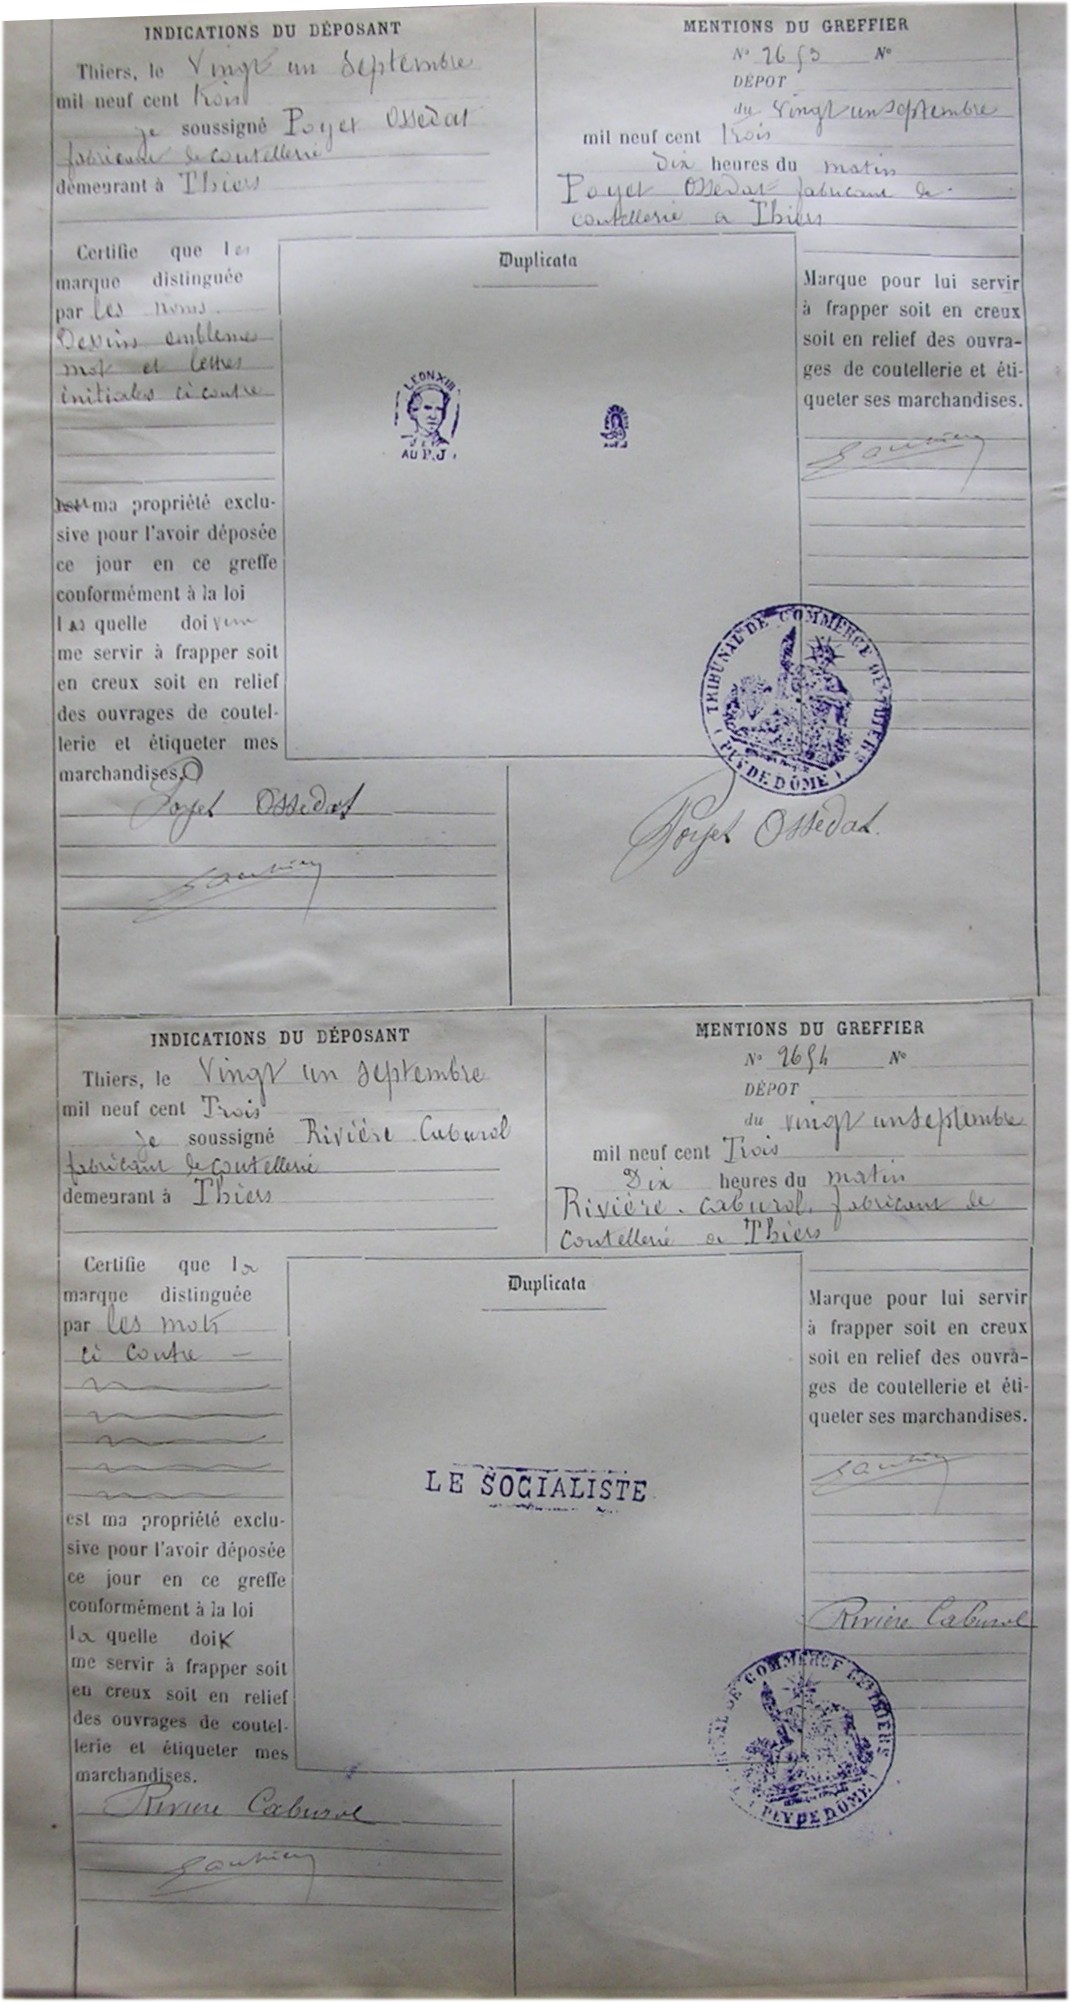 INDICATIONS DU DÉPOSANT
Thiers, le Vingt un Septembre
mil neuf cent trois
je soussigné Poyet Ossedat
fabricant de coutellerie
demeurant à Thiers
MENTIONS DU GREFFIER
N° 2653 N°
DÉPOT
du vingt un septembre
mil neuf cent trois
Dix heures du matin
Poyet Ossedat fabricant de
coutellerie a Thiers
Certifie que les
marque distinguée
par les noms.
Dessins emblemes
mot et lettres
initiales ci contre
ma propriété exclu-
sive pour l'avoir déposée
ce jour en ce greffe
conformément à la loi
las quelle doivent
me servir à frapper soit
en creux soit en relief
des ouvrages de coutel-
lerie et étiqueter mes
marchandises.
Poyet Ossedat
Duplicata
LEON XIII
AU P.J.
AU P.J
Marque pour lui servir
à frapper soit en creux
soit en relief des ouvra-
ges de coutellerie et éti-
queter ses marchandises.
TRIBUNAL DE COMMERCE DE THIERS
(PUY DE DÔME)
Poyet Ossedat.
INDICATIONS DU DÉPOSANT
Thiers, le Vingt un Septembre
mil neuf cent Trois
je soussigné Rivière Caburol
fabricant de coutellerie
demeurant à Thiers
MENTIONS DU GREFFIER
N° 2654 N°
DÉPOT
du vingt un septembre
mil neuf cent Trois
Dix heures du matin
Rivière. Caburol. fabricant de
coutellerie a Thiers
Certifie que la
marque distinguée
par les mots
ci contre —
est ma propriété exclu-
sive pour l'avoir déposée
ce jour en ce greffe
conformément à la loi
la quelle doit
me servir à frapper soit
en creux soit en relief
des ouvrages de coutel-
lerie et étiqueter mes
marchandises.
Rivière Caburol
Duplicata
LE SOCIALISTE
Marque pour lui servir
à frapper soit en creux
soit en relief des ouvra-
ges de coutellerie et éti-
queter ses marchandises.
Rivière Caburol
DE COMMERCE DE THIERS
(PUY DE DÔME